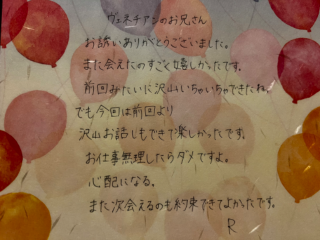 ヴェネチアンのお兄さん
お誘いありがとうございました。
また会えたのすごく嬉しかったです。
前回みたいに沢山いちゃいちゃできたね。
でも今回は前回より
沢山お話しもできて楽しかったです。
お仕事無理したらダメですよ。
心配になる。
また次会えるのも約束できてよかったです。
R